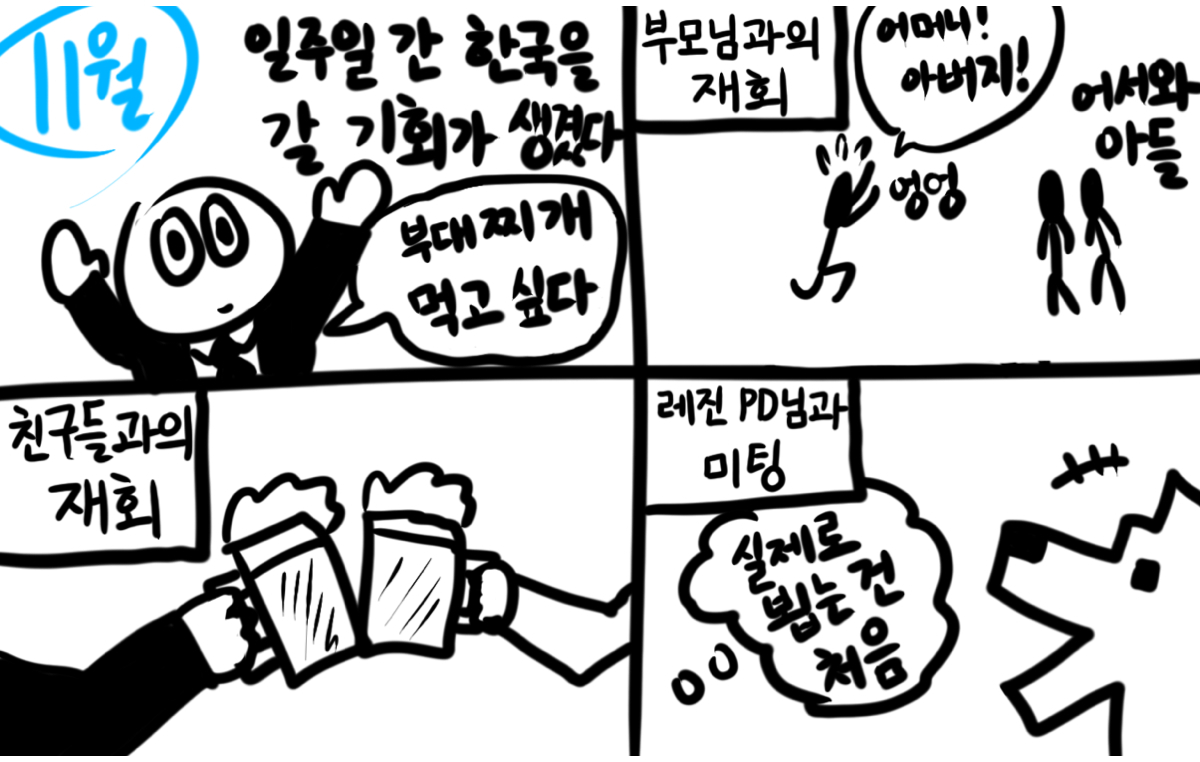 11월
일주일 간 한국을
갈 기회가 생겼다
부대찌개
먹고 싶다
부모님과의
재회
어머니!
아버지!
엉엉
어서와
아들
친구들과의
재회
레진 PD님과
미팅
실제로
뵙는 건
처음